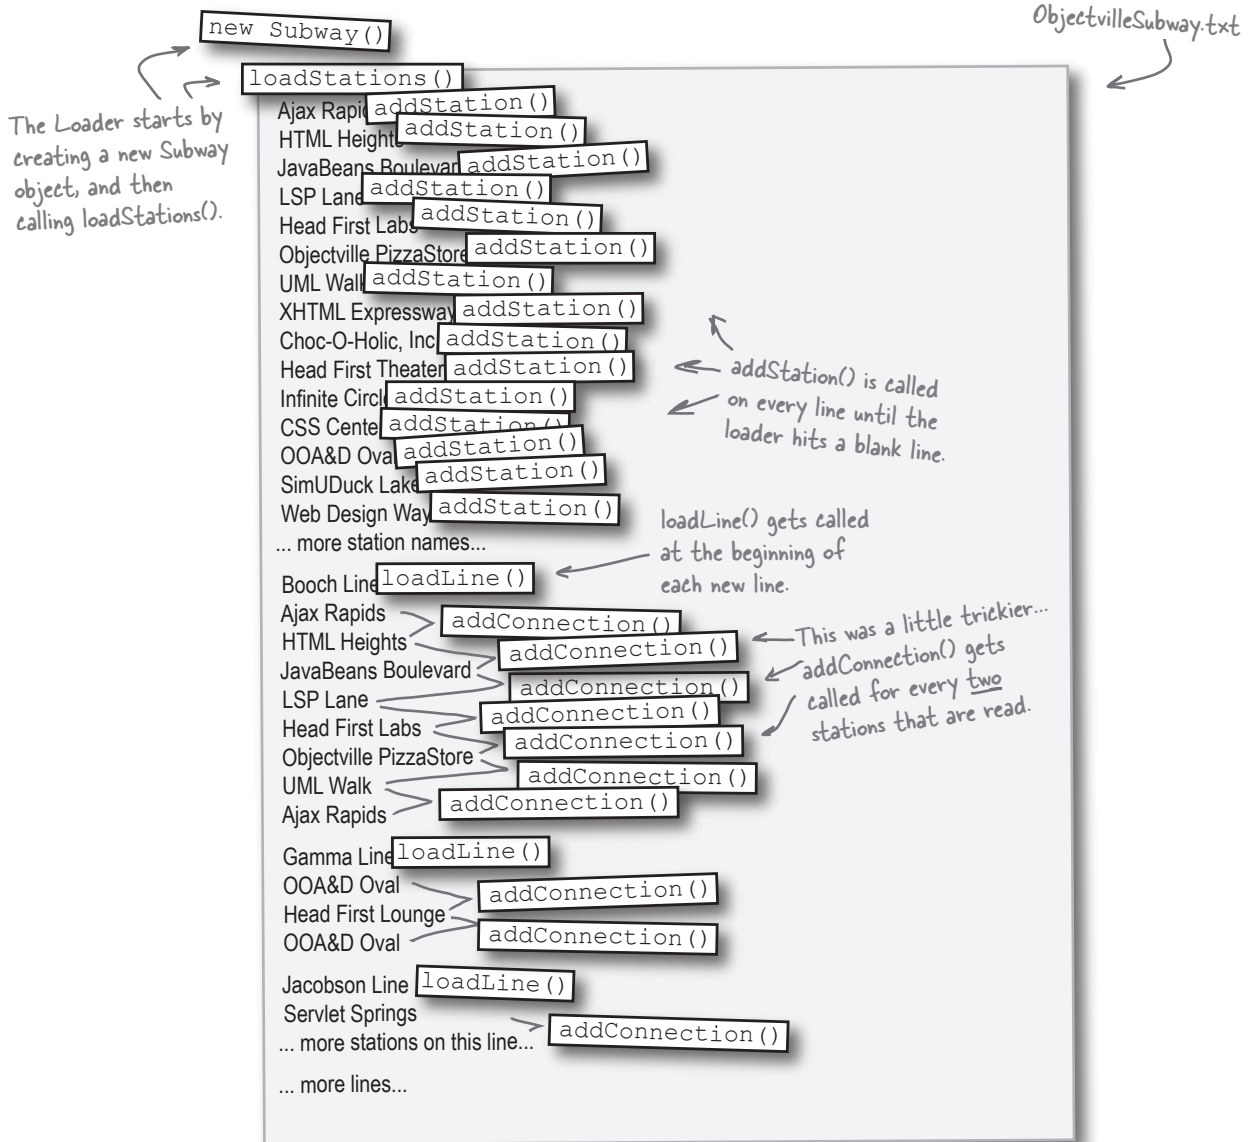 new Subway()
ObjectvilleSubway.txt
loadStations()
The Loader starts by
creating a new Subway
object, and then
calling loadStations().
Ajax Rapi addStation()
HTML Height addStation()
JavaBeans Boulevar addStation()
LSP Lane addStation()
Head First Labs addStation()
Objectville PizzaStore addStation()
UML Wal addStation()
XHTML Expressway addStation()
Choc-O-Holic, Inc addStation()
Head First Theater addStation()
Infinite Circl addStation()
CSS Cente addStation()
OOA&D Ova addStation()
SimUDuck Lake addStation()
Web Design Way addStation()
... more station names...
addStation() is called
on every line until the
loader hits a blank line.
loadLine() gets called
at the beginning of
each new line.
Booch Line loadLine()
Ajax Rapids
addConnection()
HTML Heights
addConnection()
JavaBeans Boulevard
addConnection()
LSP Lane
addConnection()
Head First Labs
addConnection()
Objectville PizzaStore
addConnection()
UML Walk
addConnection()
Ajax Rapids
This was a little trickier...
addConnection() gets
called for every two
stations that are read.
Gamma Line loadLine()
OOA&D Oval
addConnection()
Head First Lounge
addConnection()
OOA&D Oval
Jacobson Line loadLine()
Servlet Springs
addConnection()
... more stations on this line...
... more lines...